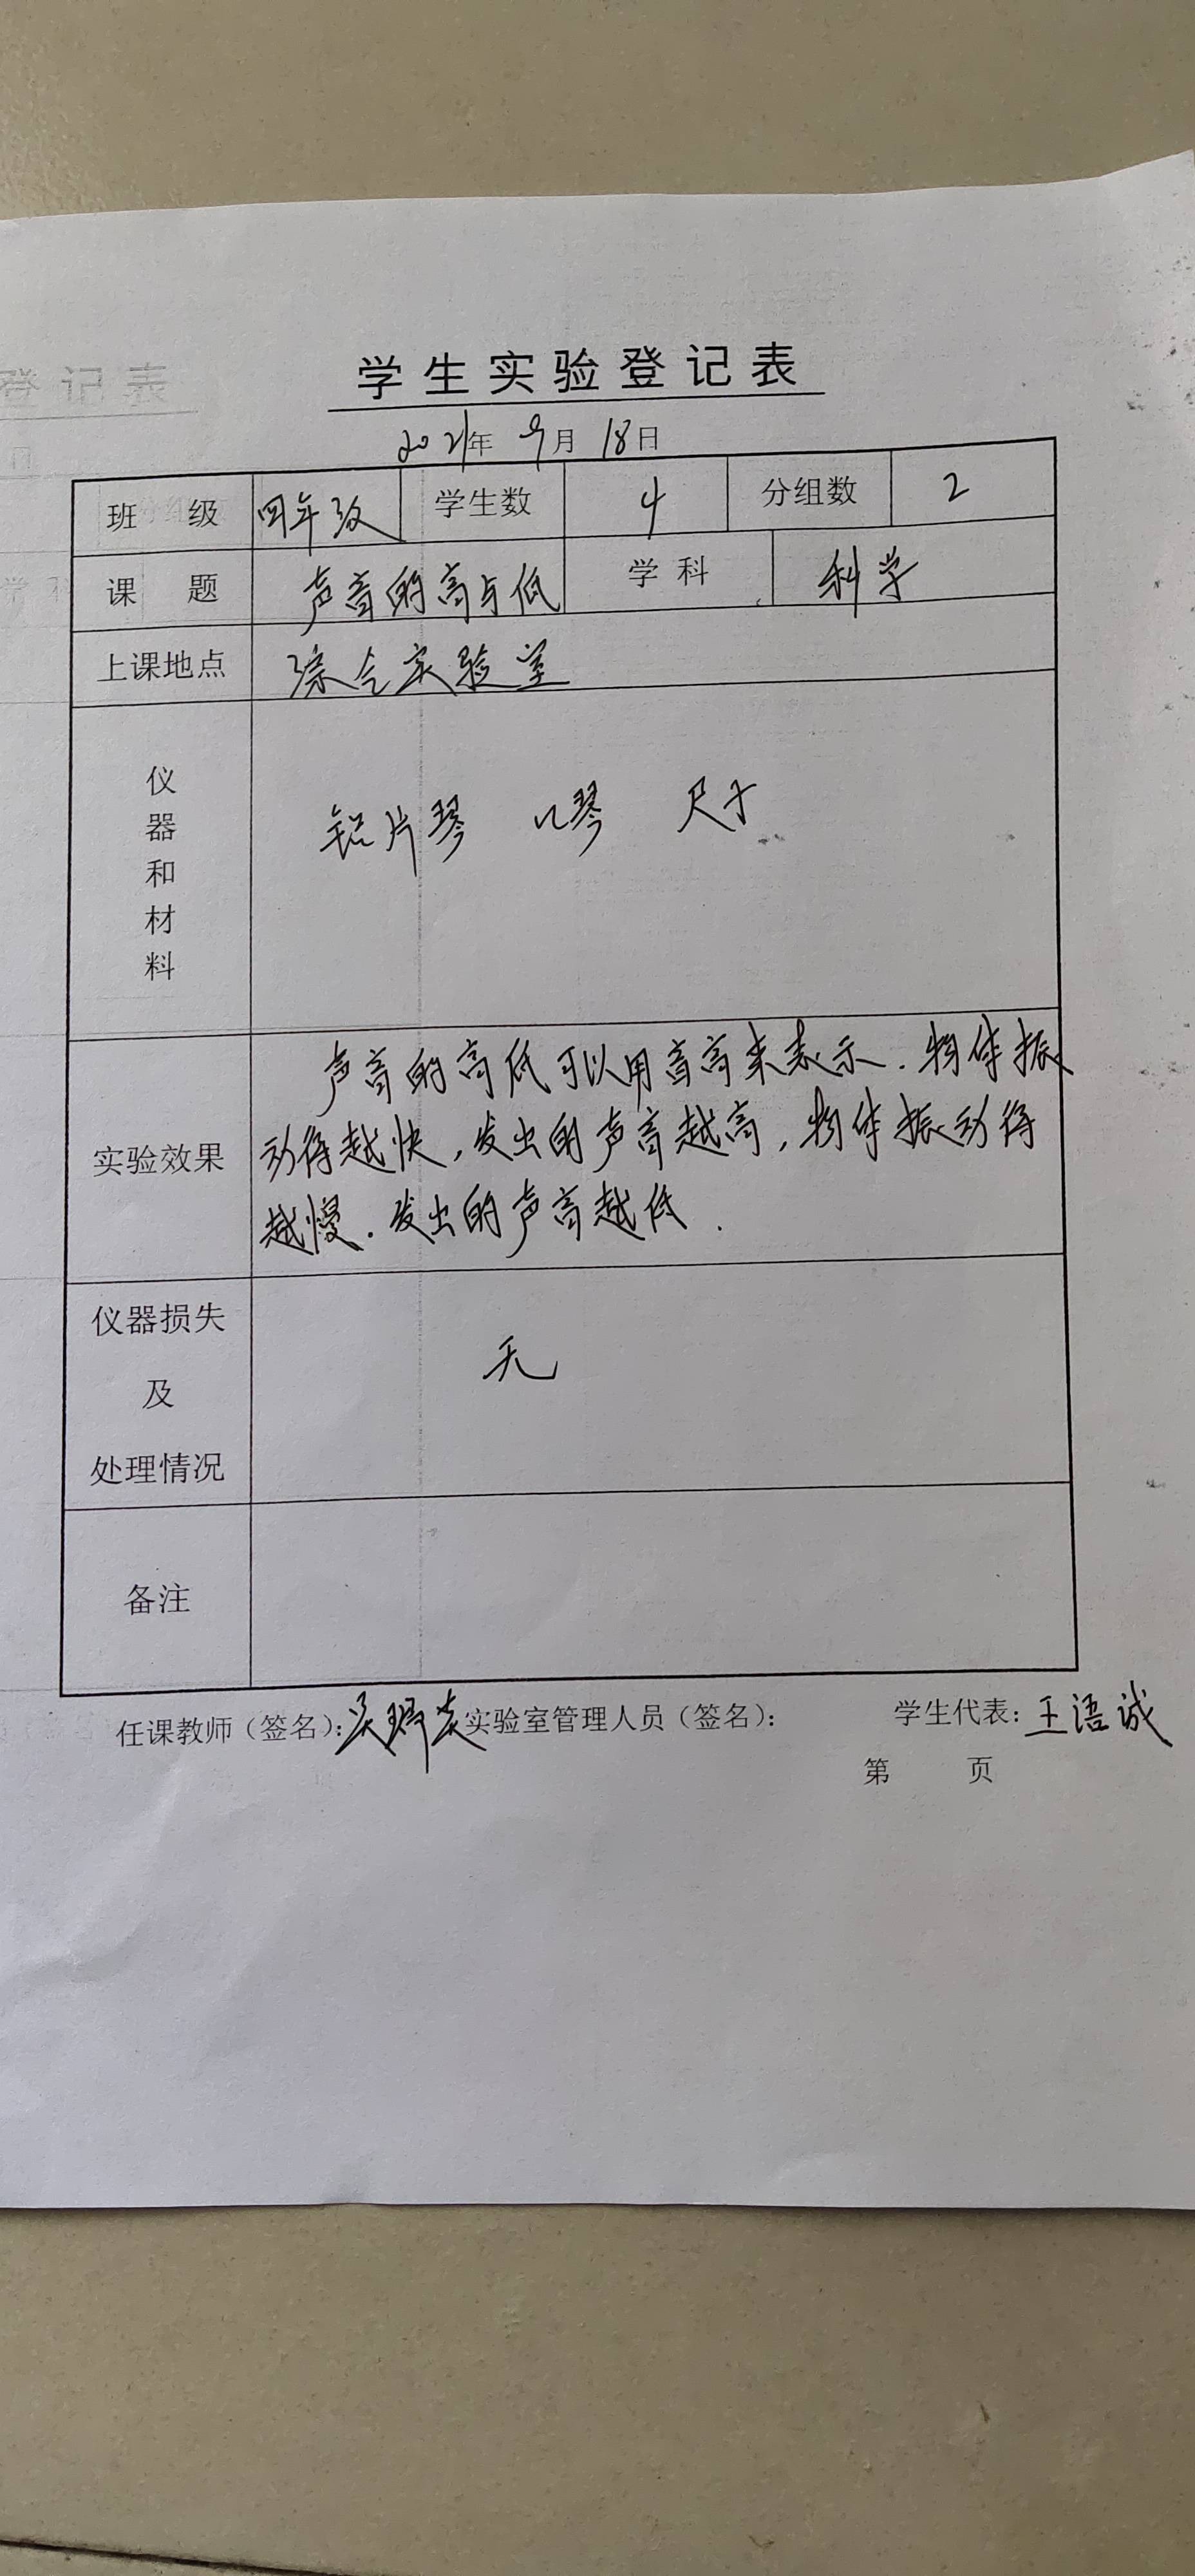 学生实验登记表
2021年 9月 18日
班 级 四年级 学生数 4 分组数 2
课 题 声音的高与低 学 科 科学
上课地点 综合实验室
仪器和材料 铝片琴 口琴 尺子
声音的高低可以用音高来表示.物体振
实验效果 动得越快,发出的声音越高,物体振动得
越慢.发出的声音越低.
仪器损失
及 无
处理情况
备注
任课教师(签名): 实验室管理人员(签名): 学生代表:王语诚
第 页
登记表
日
学科